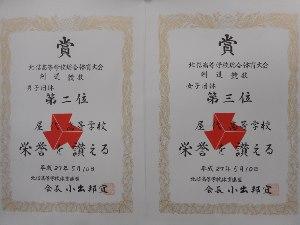 賞
北信高等学校総合体育大会
剣道競技
男子団体
第二位
高等学校
栄誉を讃える
平成27年5月10日
北信高等学校体育連盟
会長 小出邦宜
賞
北信高等学校総合体育大会
剣道競技
女子団体
第三位
高等学校
栄誉を讃える
平成27年5月10日
北信高等学校体育連盟
会長 小出邦宜